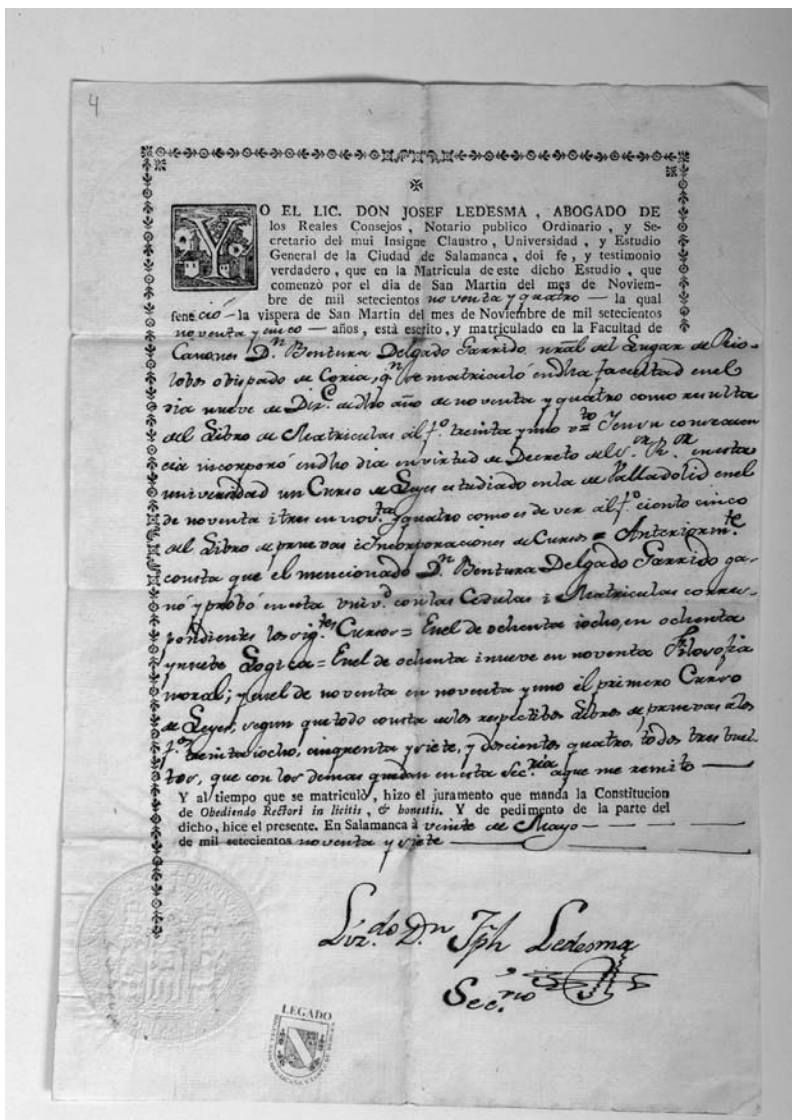 4
YO EL LIC. DON JOSEF LEDESMA, ABOGADO DE
los Reales Consejos, Notario publico Ordinario, y Se-
cretario del mui Insigne Claustro, Universidad, y Estudio
General de la Ciudad de Salamanca, doi fe, y testimonio
verdadero, que en la Matricula de este dicho Estudio, que
comenzò por el dia de San Martin del mes de Noviem-
bre de mil setecientos noventa y quatro — la qual
feneció — la vispera de San Martin del mes de Noviembre de mil setecientos
noventa y cinco — años, està escrito, y matriculado en la Facultad de
Canones Dn. Bentura Delgado Garrido nral del Lugar de Rio-
lobos obispado de Coria, qn. se matriculó en dha facultad en el
dia nueve de Dizre. de dho año de noventa y quatro como resulta
del Libro de Matriculas al fo. treinta y uno vto. Y en su consecuen
cia incorporó en dho dia en virtud de Decreto del Sor. Ror. en esta
universidad un Curso de Leyes estudiado en la de Valladolid en el
de noventa i tres en novta. y quatro como es de ver al fo. ciento cinco
del Libro de pruevas è Incorporaciones de Cursos = Anteriormte.
consta que el mencionado Dn. Bentura Delgado Garrido ga-
nó y probó en esta univd. con las Cedulas i Matriculas corres-
pondientes los sigtes. Cursos = En el de ochenta iocho, en ochenta
y nuebe Logica = En el de ochenta i nueve en noventa Filosofia
moral; y en el de noventa en noventa y uno el primero Curso
de Leyes, segun que todo consta de los respectibos Libros de pruevas a los
fos. treinta iocho, cinquenta y siete, y doscientos quatro, todos tres buel-
tos, que con los demas quedan en esta Secria. a que me remito —
Y al tiempo que se matriculò, hizo el juramento que manda la Constitucion
de Obediendo Rectori in licitis, & honestis. Y de pedimento de la parte del
dicho, hice el presente. En Salamanca à veinte de Mayo —
de mil setecientos noventa y siete —
Lizdo. Dn. Jph Ledesma
Secrio.
LEGADO